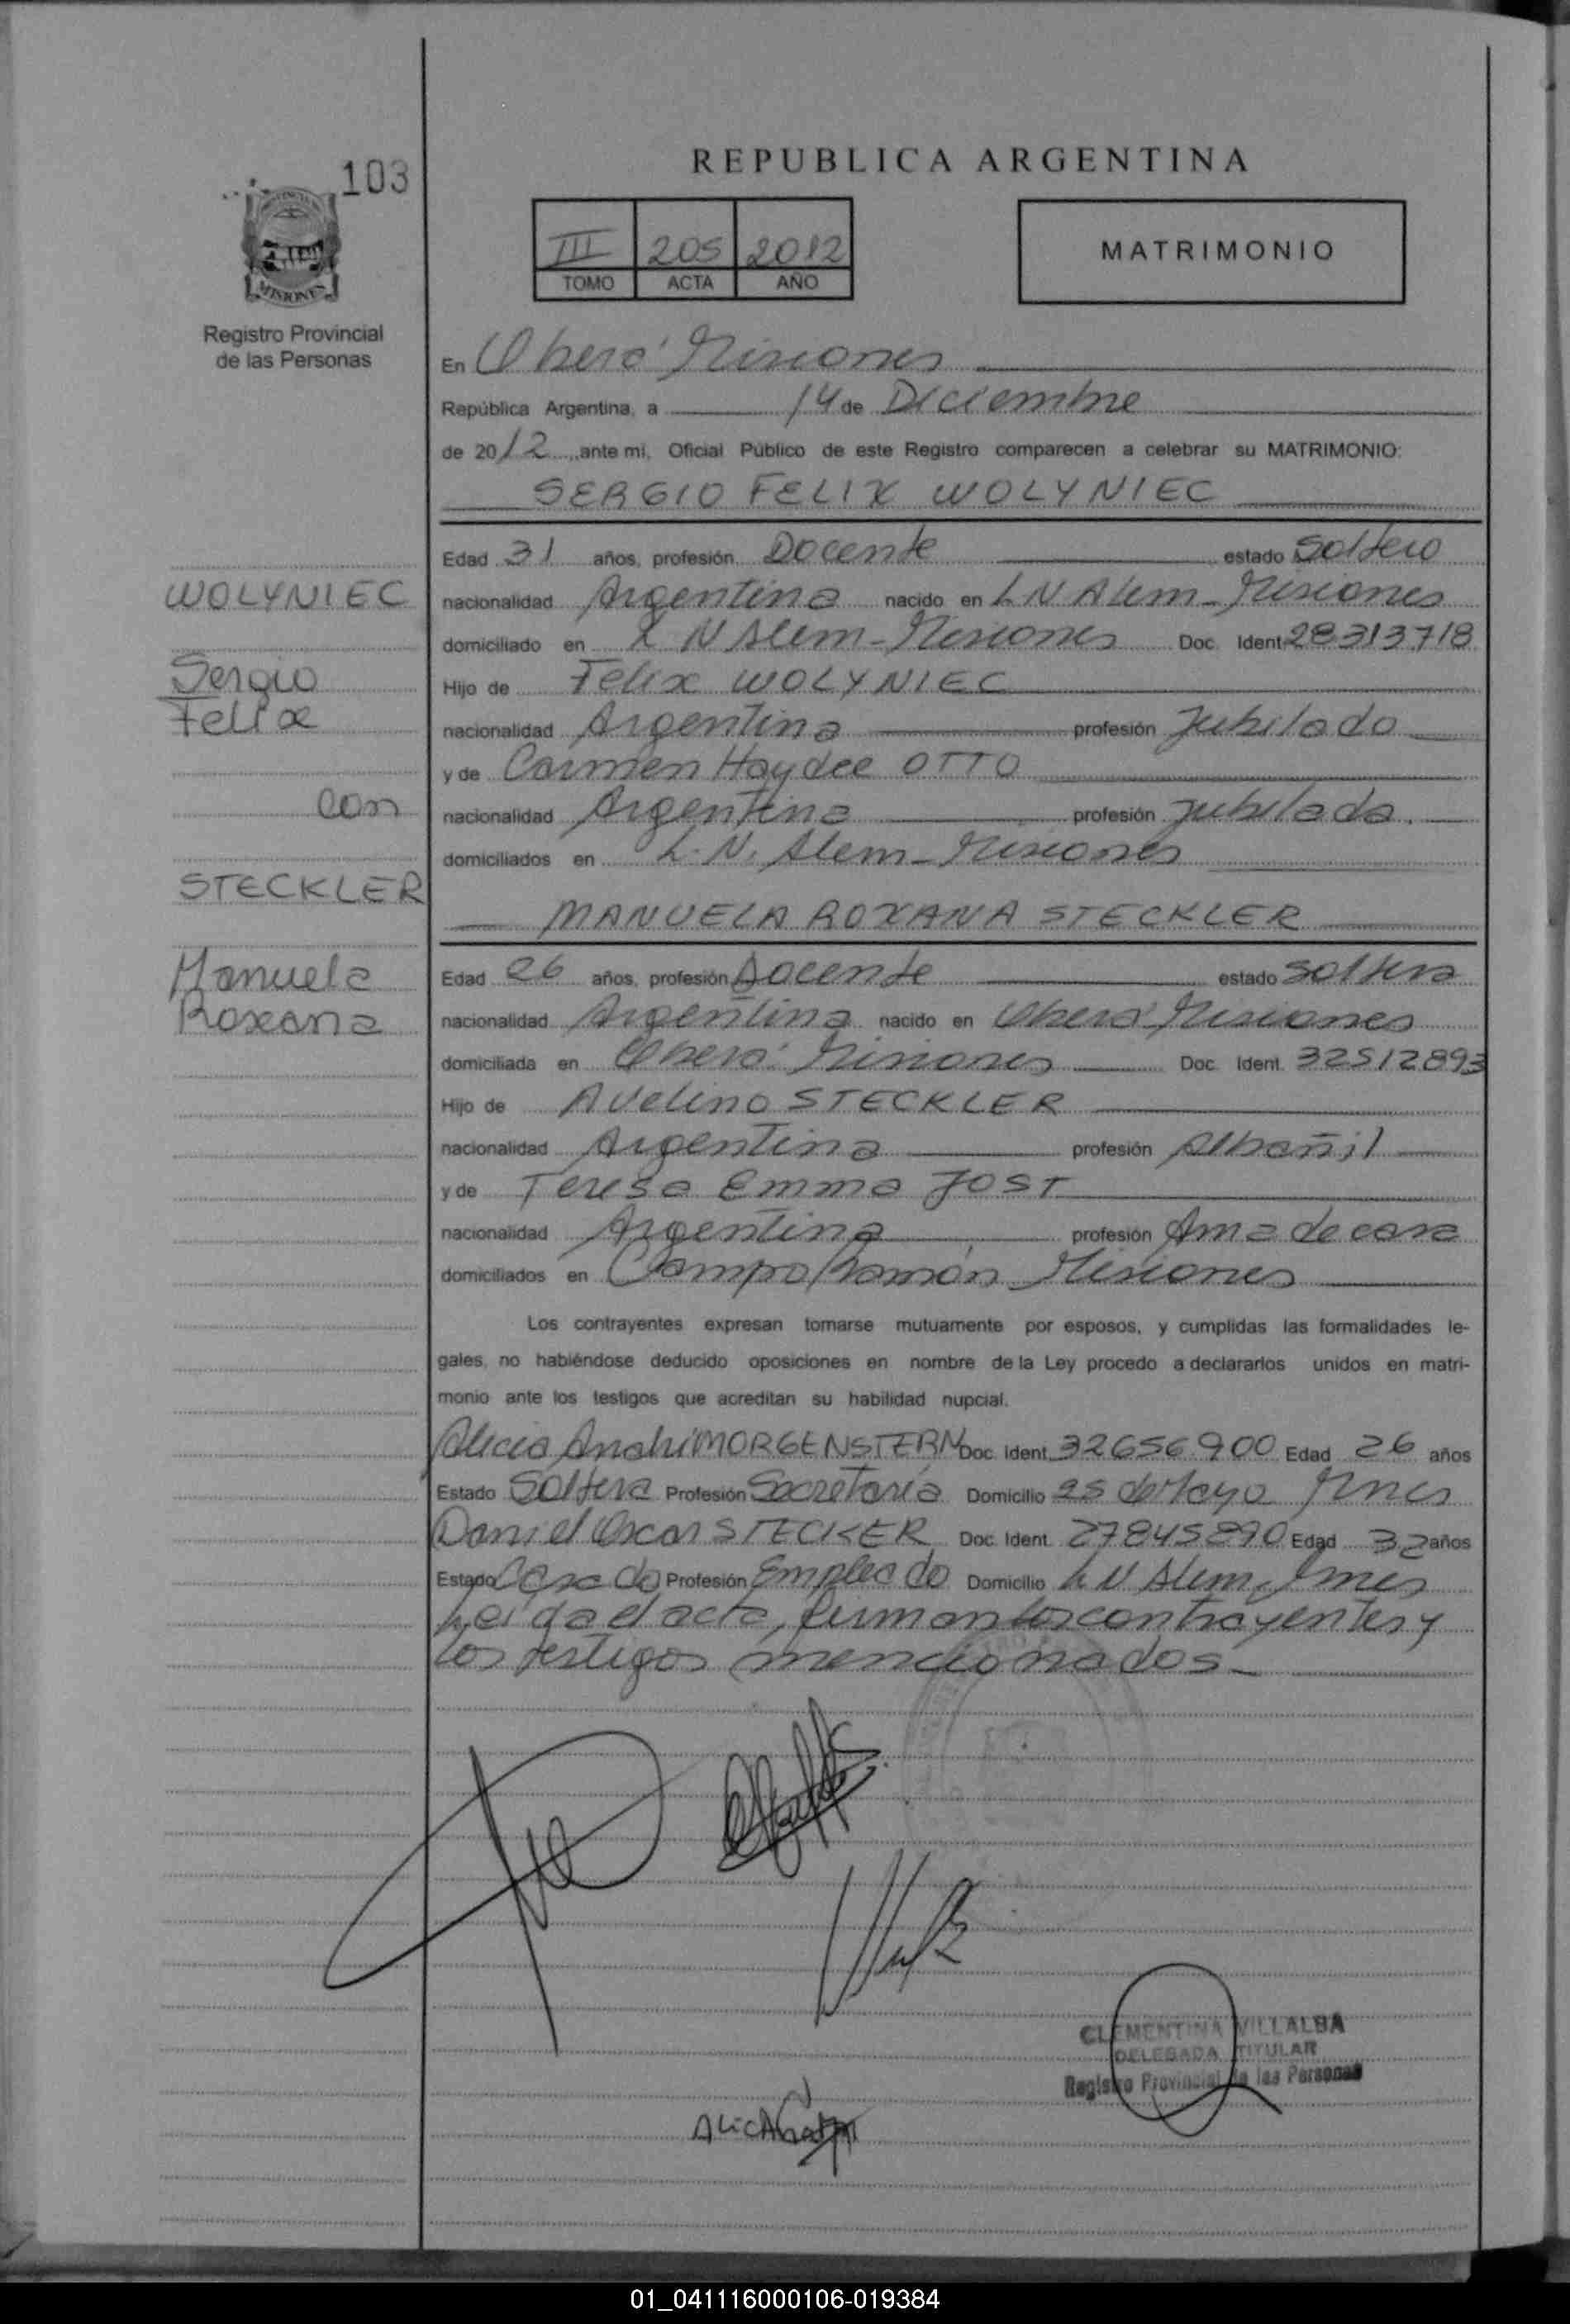 103
REPUBLICA ARGENTINA
III 205 2012
TOMO ACTA AÑO
MATRIMONIO
MISIONES
Registro Provincial
de las Personas
En Oberá Misiones
República Argentina, a 14 de Diciembre
de 2012, ante mi, Oficial Público de este Registro comparecen a celebrar su MATRIMONIO:
SERGIO FELIX WOLYNIEC
Edad 31 años, profesión Docente estado Soltero
WOLYNIEC
nacionalidad Argentina nacido en L N Alem - Misiones
domiciliado en L N Alem - Misiones Doc. Ident 28313718
Sergio
Hijo de Felix WOLYNIEC
Felix
nacionalidad Argentina profesión Jubilado
y de Carmen Haydee OTTO
con
nacionalidad Argentina profesión Jubilada.
domiciliados en L. N. Alem - Misiones
STECKLER
MANUELA ROXANA STECKLER
Manuela
Edad 26 años, profesión Docente estado soltera
Roxana
nacionalidad Argentina nacido en Oberá Misiones
domiciliada en Oberá Misiones Doc. Ident. 32512893
Hijo de Avelino STECKLER
nacionalidad Argentina profesión Albañil
y de Teresa Emma JOST
nacionalidad Argentina profesión Ama de casa
domiciliados en Campo Ramón Misiones
Los contrayentes expresan tomarse mutuamente por esposos, y cumplidas las formalidades le-
gales, no habiéndose deducido oposiciones en nombre de la Ley procedo a declararlos unidos en matri-
monio ante los testigos que acreditan su habilidad nupcial.
Alicia Anahi MORGENSTERN Doc. Ident. 32656900 Edad 26 años
Estado Soltera Profesión Secretaria Domicilio 25 de Mayo Mnes
Daniel Oscar STECKER Doc. Ident. 27845890 Edad 32 años
Estado Casado Profesión Empleado Domicilio L N Alem, Mnes
Leída el acta, firman los contrayentes y
los testigos mencionados
CLEMENTINA VILLALBA
DELEGADA TITULAR
Registro Provincial de las Personas
01_041116000106-019384